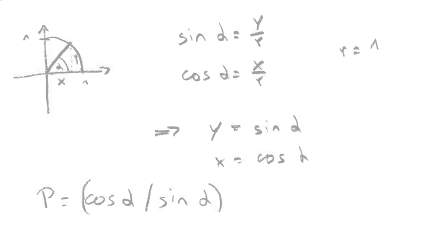 1
α
x
1
sin α = y/r
cos α = x/r
r = 1
=> y = sin α
x = cos α
P = (cos α / sin α)